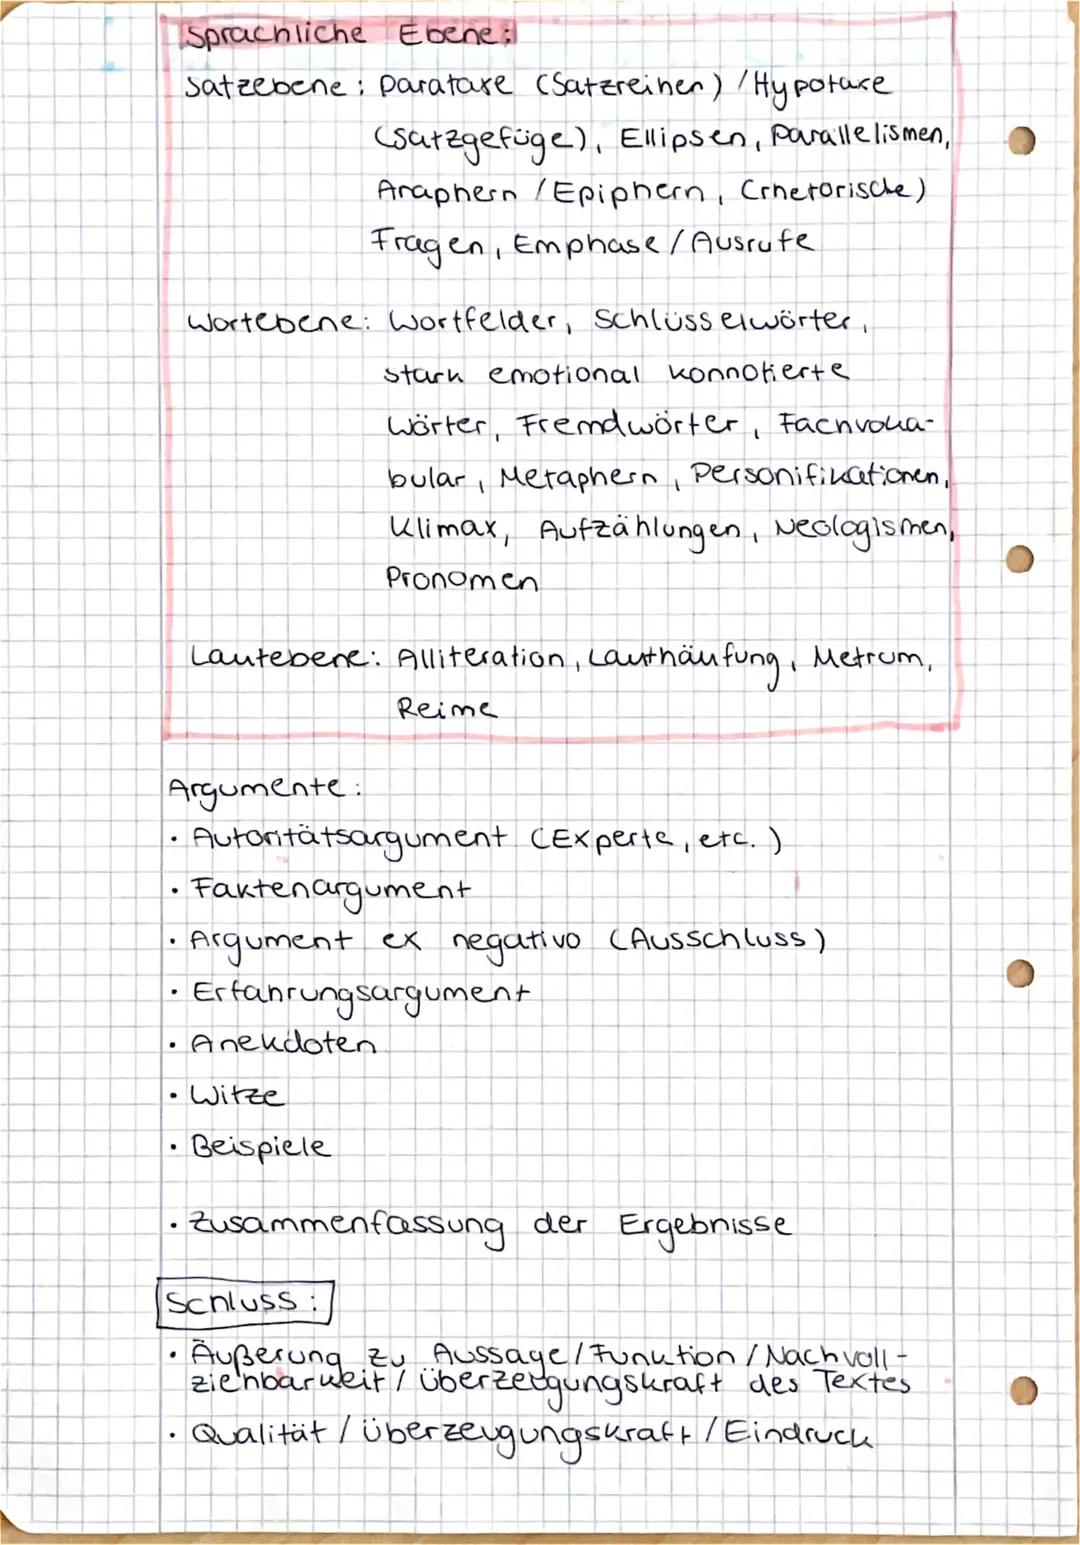 Sprachliche Ebene:
Satzebene: Parataxe (Satzreihen) / Hypotaxe
(Satzgefüge), Ellipsen, Parallelismen,
Anaphern / Epiphern, (rhetorische)
Fragen, Emphase / Ausrufe
Wortebene: Wortfelder, Schlüsselwörter,
stark emotional konnotierte
Wörter, Fremdwörter, Fachvoka-
bular, Metaphern, Personifikationen,
Klimax, Aufzählungen, Neologismen,
Pronomen
Lautebene: Alliteration, Lauthäufung, Metrum,
Reime
Argumente:
· Autoritätsargument (Experte, etc.)
· Faktenargument
· Argument ex negativo (Ausschluss)
· Erfahrungsargument
· Anekdoten
· Witze
· Beispiele
· Zusammenfassung der Ergebnisse
Schluss:
· Äußerung zu Aussage / Funktion / Nachvoll-
ziehbarkeit / Überzeugungskraft des Textes
· Qualität / Überzeugungskraft / Eindruck